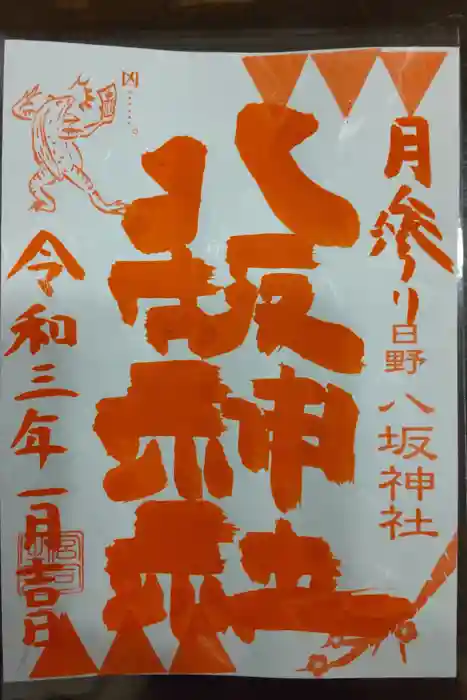 月参り
日野
八坂神社
八坂神社
凶……。
令和三年一月吉日